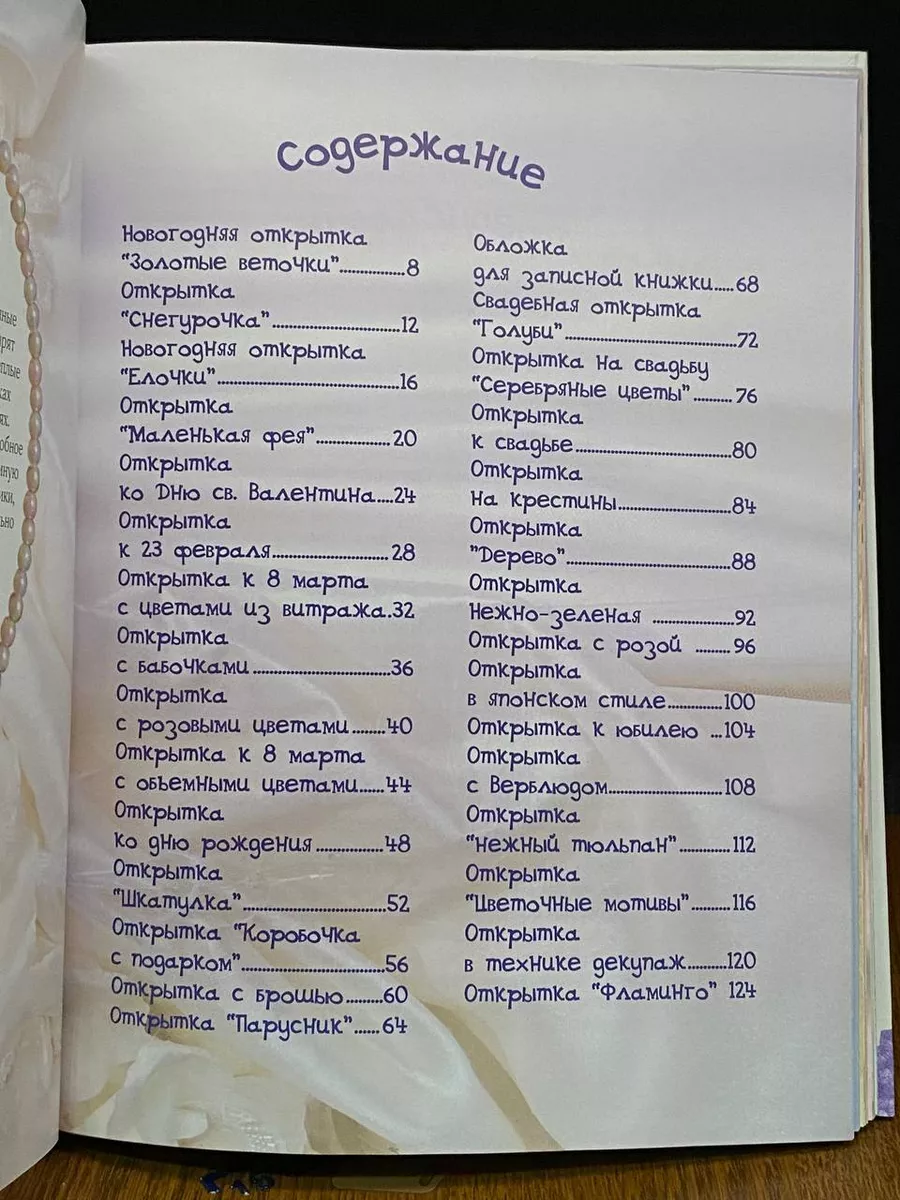 ные
рят
плые
ках
ях.
обное
нную
ики,
ьно
Содержание
Новогодняя открытка
"Золотые веточки"...............8
Открытка
"Снегурочка"..............................12
Новогодняя открытка
"Елочки"..........................................16
Открытка
"Маленькая фея".................20
Открытка
ко Дню св. Валентина....24
Открытка
к 23 февраля...........................28
Открытка к 8 марта
с цветами из витража.32
Открытка
с бабочками................................36
Открытка
с розовыми цветами........40
Открытка к 8 марта
с объемными цветами......44
Открытка
ко дню рождения................48
Открытка
"Шкатулка".................................52
Открытка "Коробочка
с подарком".................................56
Открытка с брошью.........60
Открытка "Парусник"......64
Обложка
для записной книжки.....68
Свадебная открытка
"Голуби"........................................72
Открытка на свадьбу
"Серебряные цветы".........76
Открытка
к свадьбе....................................80
Открытка
на крестины..........................84
Открытка
"Дерево"......................................88
Открытка
нежно-зеленая ...................92
Открытка с розой ........96
Открытка
в японском стиле.............100
Открытка к юбилею ...104
Открытка
с Верблюдом..........................108
Открытка
"Нежный тюльпан"............112
Открытка
"Цветочные мотивы".........116
Открытка
в технике декупаж.........120
Открытка "Фламинго" 124